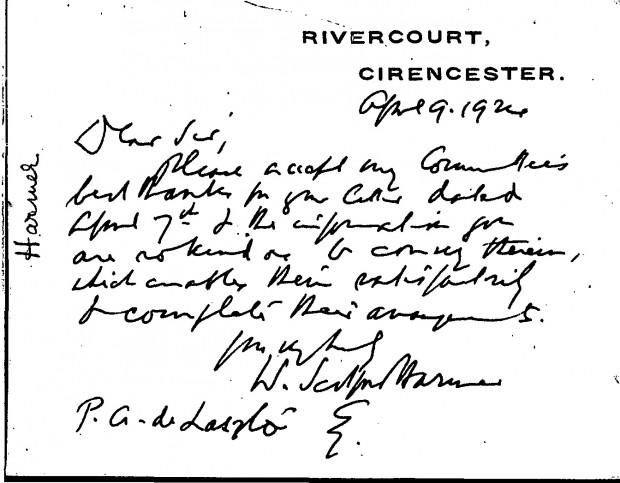 RIVERCOURT,
CIRENCESTER.
April 9. 1924
Dear Sir,
Please accept my Committee's
best thanks for your letter dated
April 7th & the information you
are so kind as to convey therein,
which enables them satisfactorily
to complete their arrangements.
Yours very truly
W. Scotford Harmer
P. A. de László
Harmer